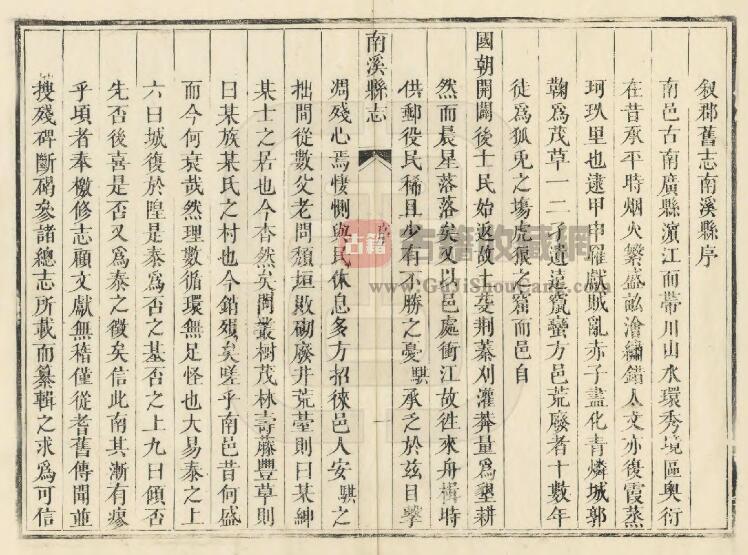 叙郡舊志南溪縣序
南邑古南廣縣濵江而帶川山水環秀境區奧衍
在昔承平時烟火繁盛畝澮繡錯人文亦復霞蒸
珂玖里也逮甲申罹獻賊亂赤子盡化青燐城郭
鞠爲茂草一二孑遺遠竄蠻方邑荒廢者十數年
徒爲狐兎之塲虎狼之窟而邑自
國朝開闢後士民始返故土芟荆蓁刈灌莽量爲墾耕
然而晨星落落矣又以邑處衝江故徃來舟楫時
供郵役民稀且少有不勝之憂騏承乏於兹目擊
南溪縣志
凋殘心焉悽惻與民休息多方招徠邑人安騏之
拙間從數父老問頽垣敗砌廢井荒臺則曰某紳
某士之居也今杳然矣問叢樹茂林壽藤豐草則
曰某族某氏之村也今銷殘矣嗟乎南邑昔何盛
而今何衰哉然理數循環無足怪也大易泰之上
六曰城復於隍是泰爲否之基否之上九曰傾否
先否後喜是否又爲泰之徵矣信此南其漸有瘳
乎頃者奉檄修志顧文獻無稽僅從耆舊傳聞並
搜殘碑斷碣參諸總志所載而纂輯之求爲可信
古籍
古籍收藏网
www.GuJiShouCang.com